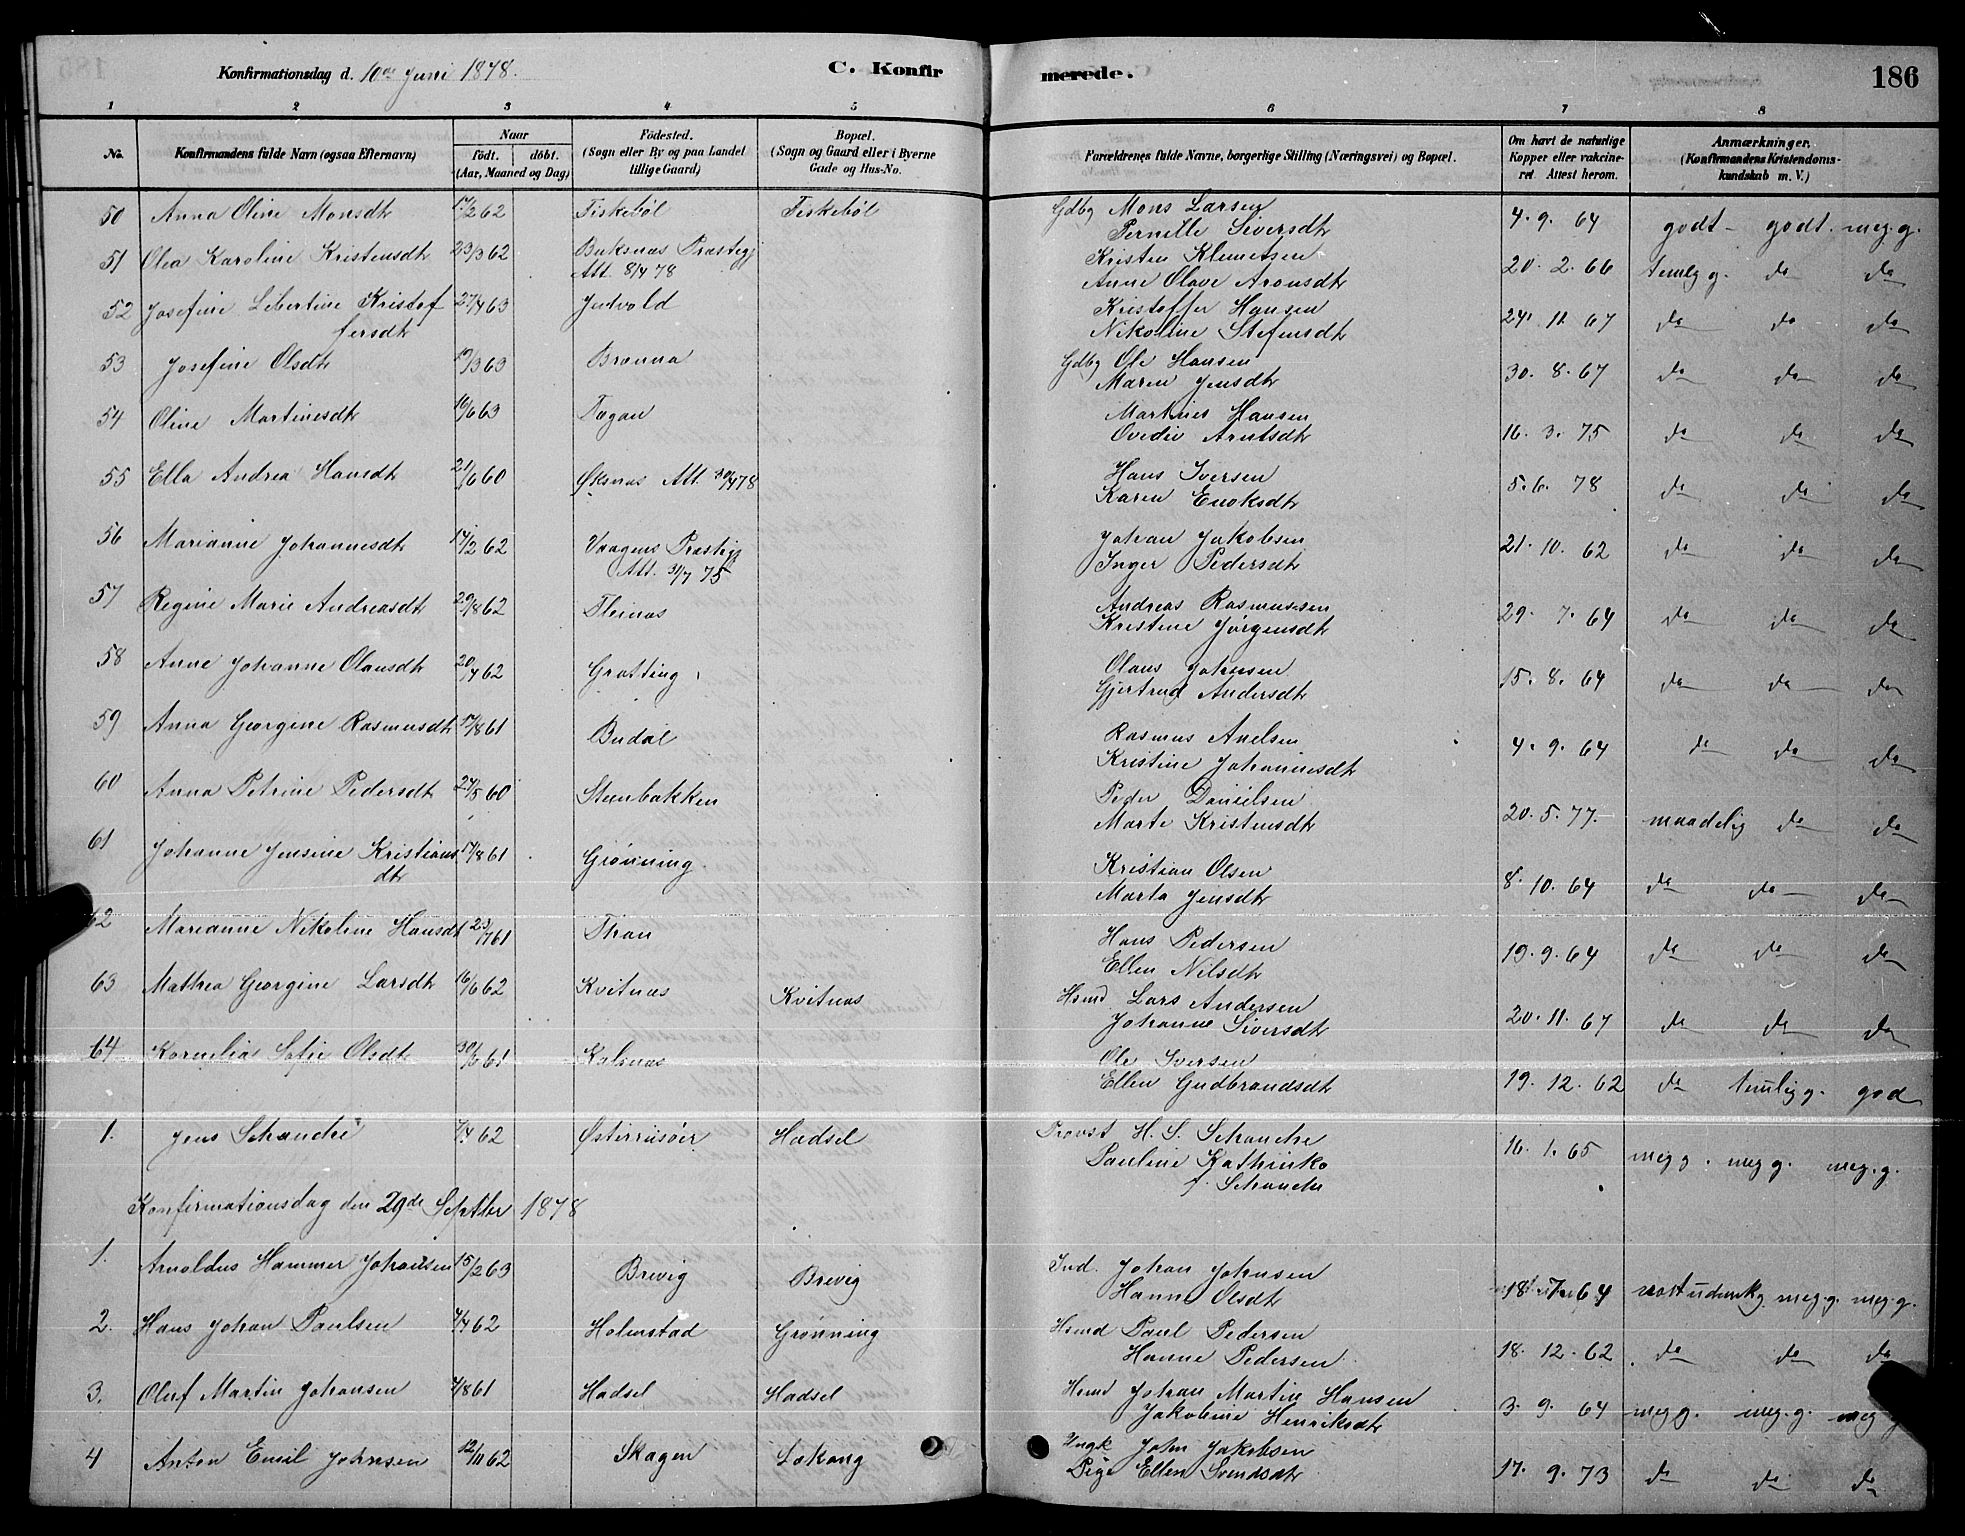 Konfirmationsdag d. 10de Juni 1878. C. Konfirmerede. 186
1 2 3 4 5 6 7 8
No. Konfirmandens fulde Navn (ogsaa Efternavn) Naar født. døbt. (Aar, Maaned og Dag) Födested. (Sogn eller By og paa Landet tillige Gaard) Bopæl. (Sogn og Gaard eller i Byerne Gade og Hus-No. Forældrenes fulde Navne, borgerlige Stilling (Næringsvei) og Bopæl. Om havt de naturlige Kopper eller vakcineret. Attest herom. Anmærkninger. (Konfirmandens Kristendomskundskab m. V.)
50 Anna Oline Monsdtr 17/2 62 Fiskebøl Fiskebøl Gdbg Mons Larsen 4. 9. 64 godt godt. meg. g.
Pernille Siversdtr
51 Olea Karoline Kristensdtr 23/3 62 Buksnæs Præstegj Kristen Klemetsen 20. 2. 66 temlg g. do do
Att. 8/4 78 Anne Olave Aronsdtr
52 Josefine Libertine Kristof 27/4 63 Jndvold Kristoffer Hansen 24. 11. 67 do do do
fersdtr Nikoline Stefensdtr
53 Josefine Olsdtr 19/3 63 Brønna Gdbg Ole Hansen 30. 8. 67 do do do
Maren Jensdtr
54 Oline Martinesdtr 16/6 63 Tøgan Martines Hansen 16. 3. 75 do do do
Ovedie Arntsdtr
55 Ella Andrea Hansdtr 21/6 60 Øksnæs Att. 30/4 78 Hans Iversen 5. 6. 78 do do do
Karen Enoksdtr
56 Marianne Johannesdtr 14/2 62 Vaagens Præstegj Johan Jakobsen 21. 10. 62 do do do
Att. 31/7 75 Inger Pedersdtr
57 Regine Marie Andreasdtr 29/8 62 Fleinæs Andreas Rasmussen 29. 7. 64 do do do
Kristine Jørgensdtr
58 Anne Johanne Olausdtr 20/4 62 Grøtting Olaus Johnsen 15. 8. 64 do do do
Gjertrud Andersdtr
59 Anna Georgine Rasmusdtr 17/8 61 Budal Rasmus Axelsen 4. 9. 64 do do do
Kristine Johannesdtr
60 Anna Petrine Pedersdtr 27/5 60 Steenbakken Peder Danielsen 20. 5. 77. maadelig do do
Marte Kristensdtr
61 Johanne Jensine Kristians 17/8 61 Grønning Kristian Olsen 8. 10. 64 do do do
dtr Marta Jensdtr
62 Marianne Nikoline Hansdtr 23/7 61 Thran Hans Pedersen 19. 9. 64 do do do
Ellen Nilsdtr
63 Mathea Georgine Larsdtr 16/6 62 Kvitnæs Kvitnæs Hsmd Lars Andersen 20. 11. 67 do do do
Johanne Siversdtr
64 Kornelia Sofie Olsdtr 30/6 61 Kalsnæs Ole Iversen
Ellen Gudbrandsdtr 19. 12. 62 do temlig g. god
1. Jens Schanche 7/4 62 Østerriisöer Hadsel Provst H. S. Schanche 16. 1. 65 meg g. meg g. meg. g.
Pauline Kathinka
f. Schanche
Konfirmationsdag den 29de Septbr 1878
1. Arnoldus Hammer Johansen 15/2 63 Brevig Brevig Ind. Johan Johnsen 18. 7. 64 nost udmrkg meg. g. meg. g.
Hanne Olsdtr
2. Hans Johan Paulsen 4/4 62 Holmstad Grønning Hsmd Paul Pedersen 18. 12. 62 do do do
Hanne Pedersen
3. Oluf Martin Johansen 4/8 61 Hadsel Hadsel Hsmd Johan Martin Hansen 3. 9. 64 meg g. meg. g. meg g
Jakobine Henriksdtr
4 Anton Emil Johnsen 12/11 62 Skagen Løkang Ungk John Jakobsen 17. 9. 73 do do do
Pige Ellen Svendsdtr